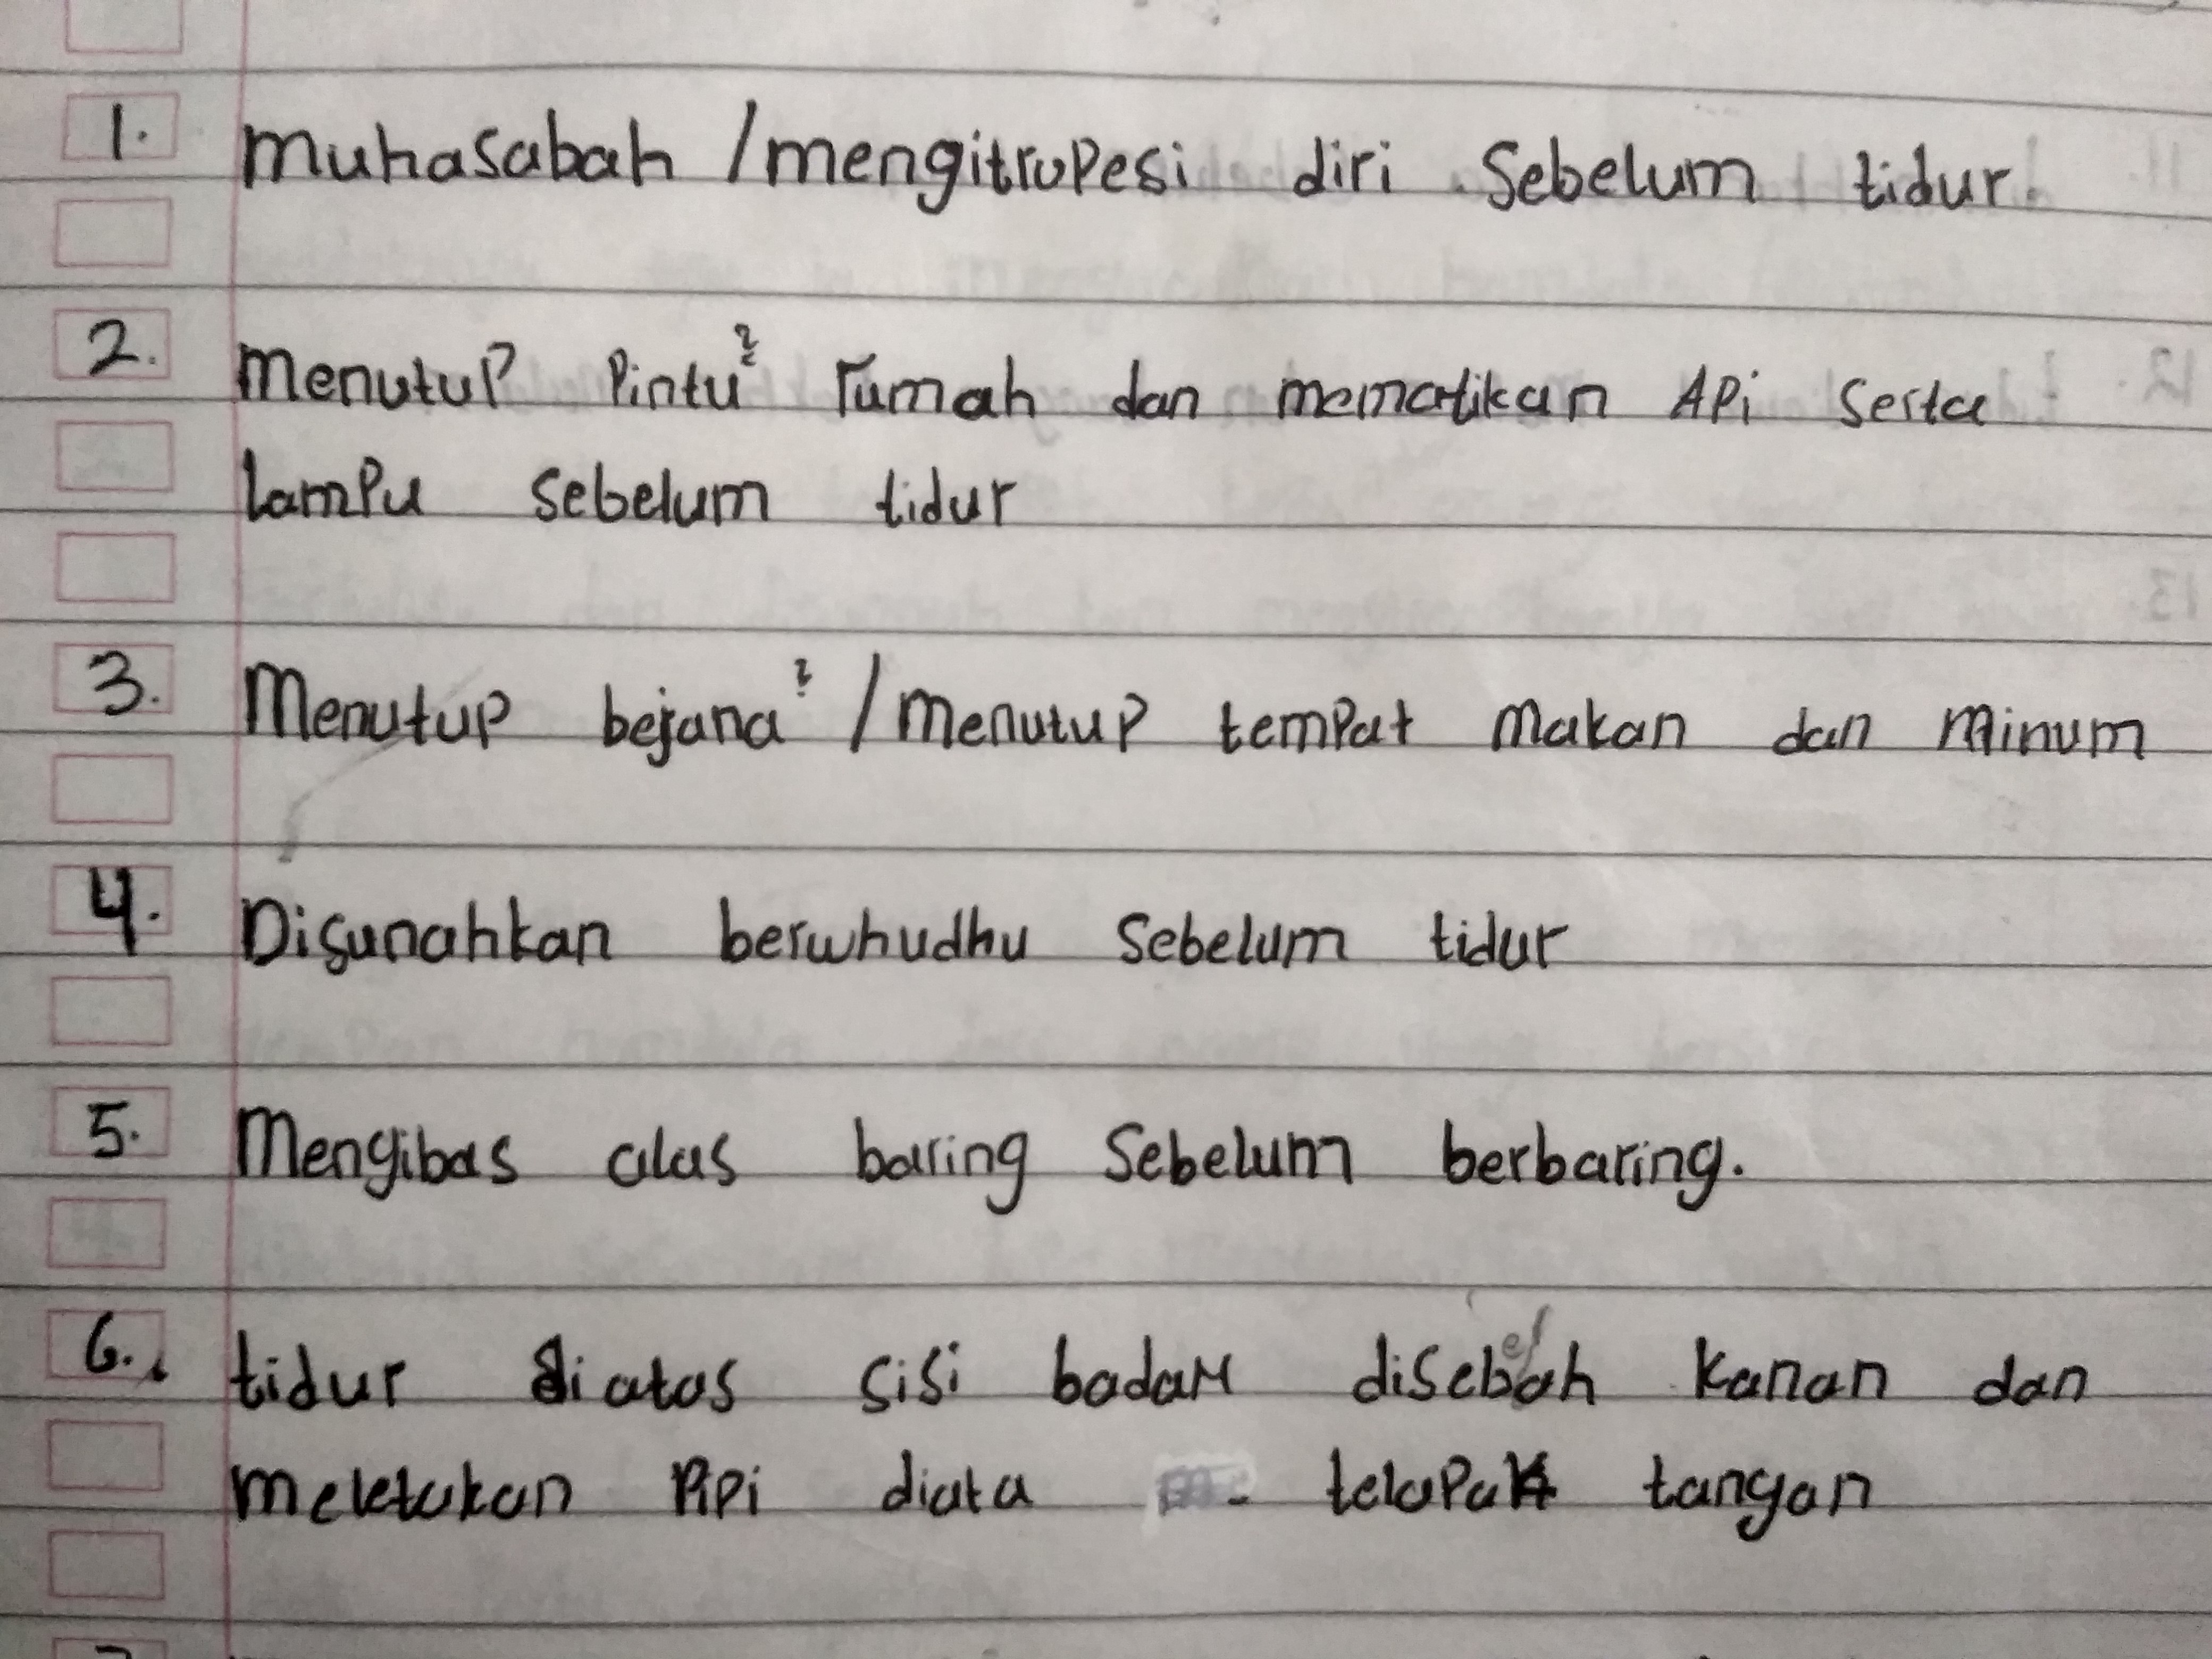 1. Muhasabah / mengitropesi diri sebelum tidur.
2. Menutup Pintu² rumah dan mematikan Api serta
lampu sebelum tidur
3. Menutup bejana² / menutup tempat makan dan minum
4. Disunahkan berwhudhu sebelum tidur
5. Mengibas alas baring sebelum berbaring.
6. tidur diatas sisi badan disebelah kanan dan
meletakan Pipi diata telapak tangan